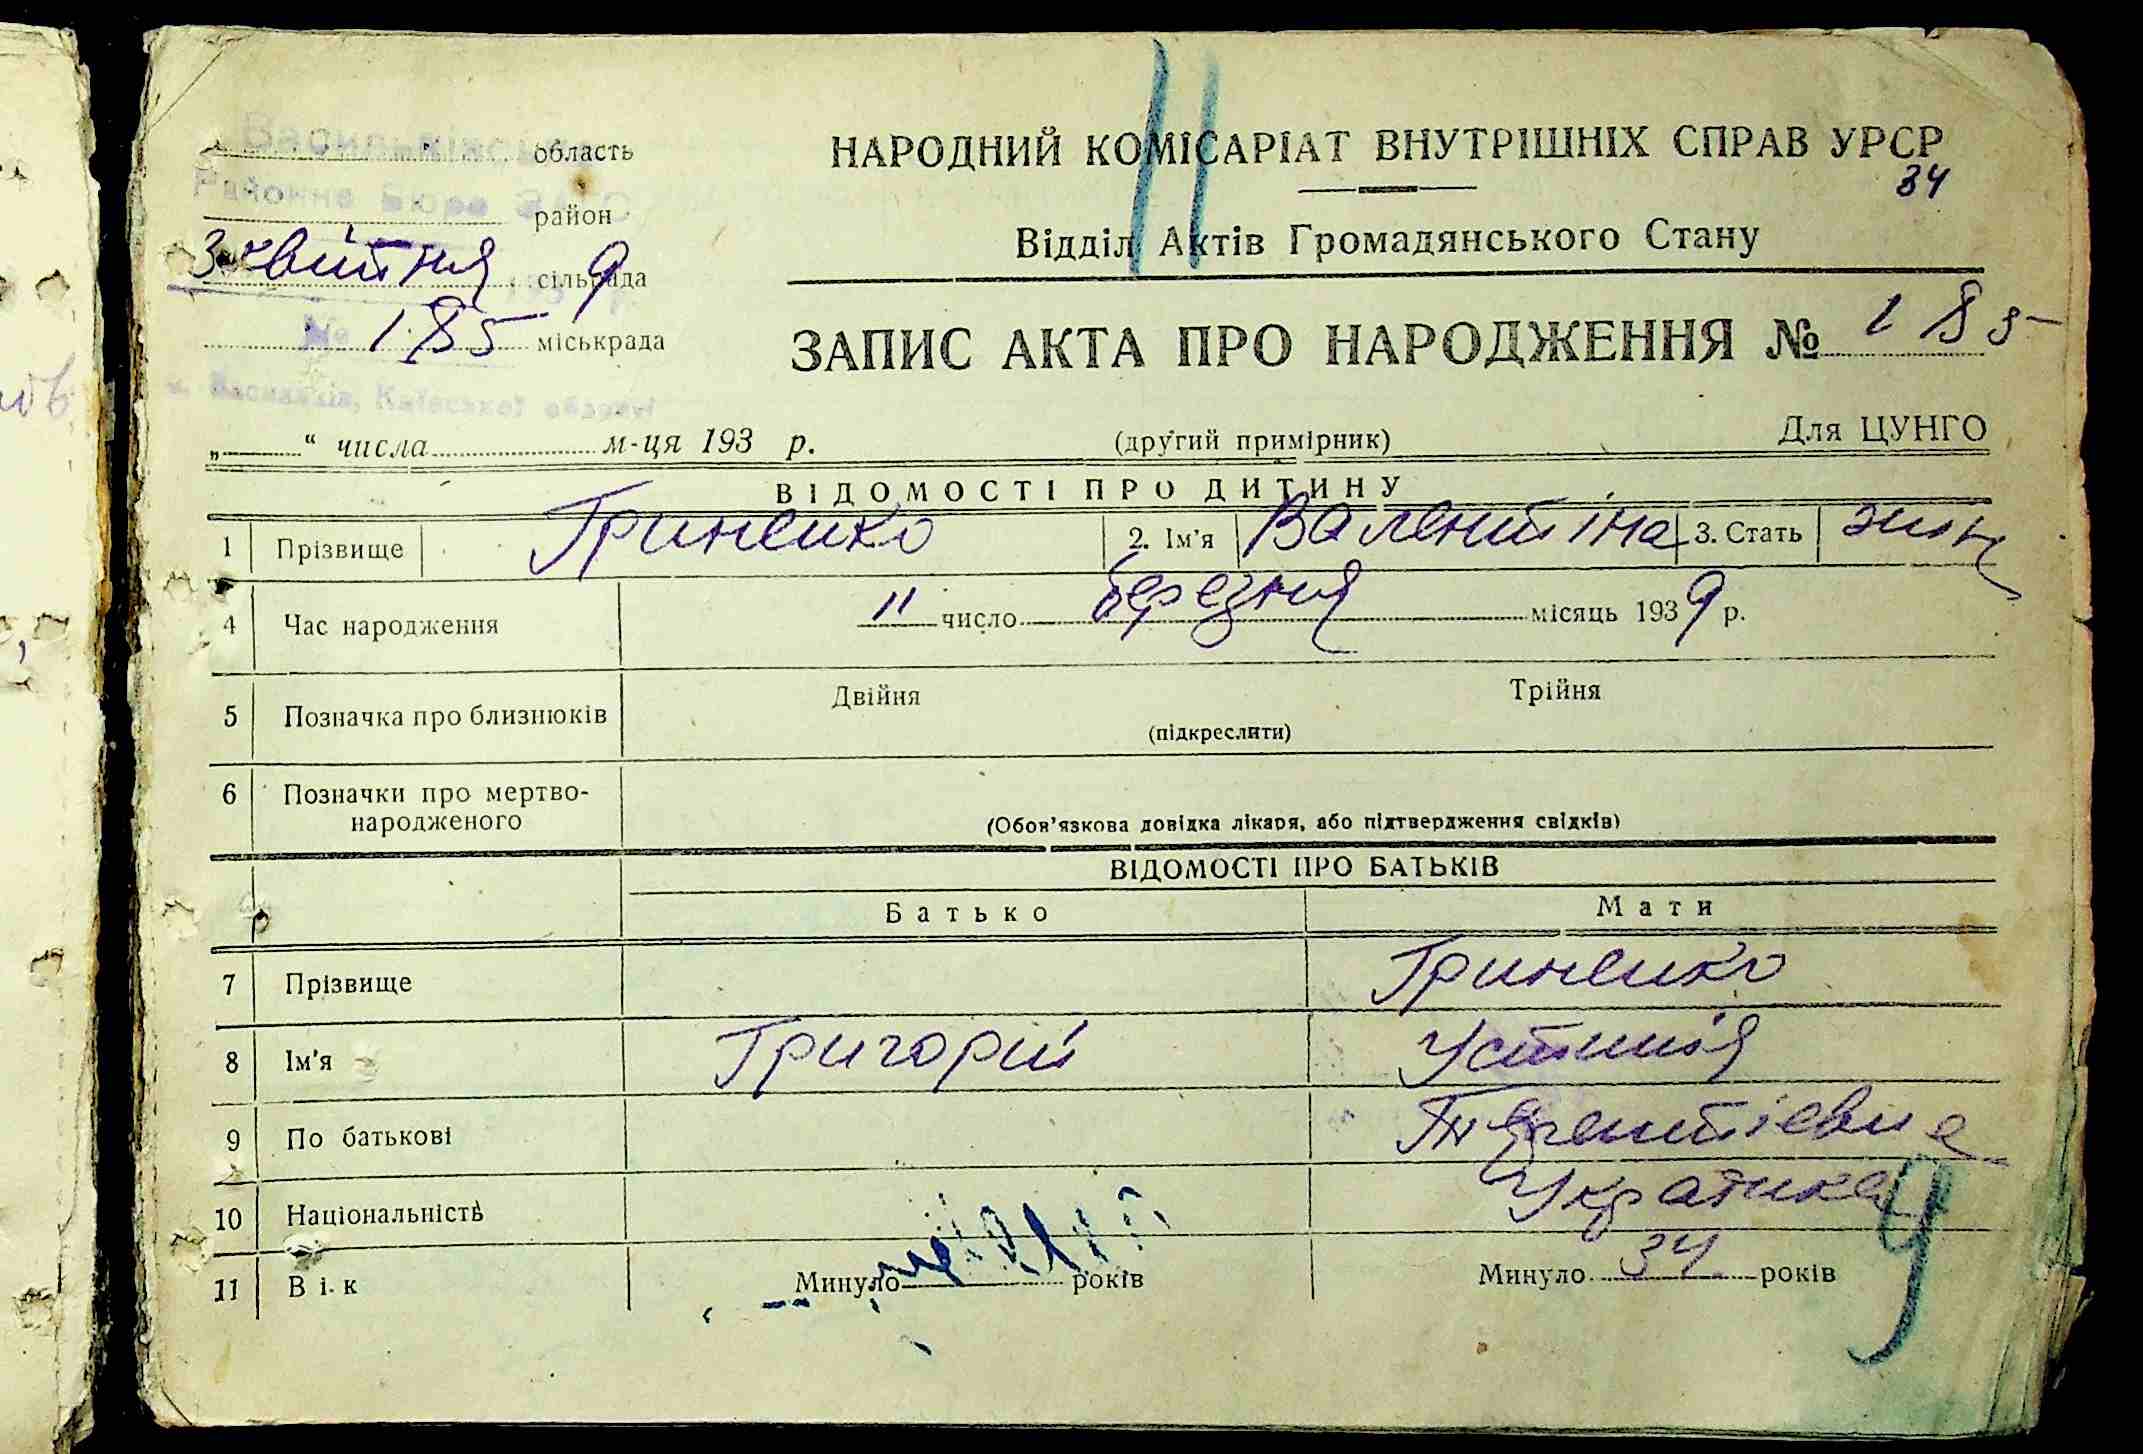 11
Васильківське область
Районне Бюро ЗАГС район
3 квітня 9 сільрада
№ 185 міськрада
м. Васильків, Київської області
„ “ числа м-ця 193 р.
НАРОДНИЙ КОМІСАРІАТ ВНУТРІШНІХ СПРАВ УРСР
34
Відділ Актів Громадянського Стану
ЗАПИС АКТА ПРО НАРОДЖЕННЯ № 185
(другий примірник) Для ЦУНГО
ВІДОМОСТІ ПРО ДИТИНУ
1 Прізвище Гриненко 2. Ім'я Валентіна 3. Стать жін
4 Час народження 11 число березня місяць 1939 р.
5 Позначка про близнюків Двійня Трійня
(підкреслити)
6 Позначки про мертво-
народженого
(Обов'язкова довідка лікаря, або підтвердження свідків)
ВІДОМОСТІ ПРО БАТЬКІВ
Батько Мати
7 Прізвище Гриненко
8 Ім'я Григорій Устинія
9 По батькові Терентієвна
10 Національність Українка
11 Вік Минуло років Минуло 34 років
9